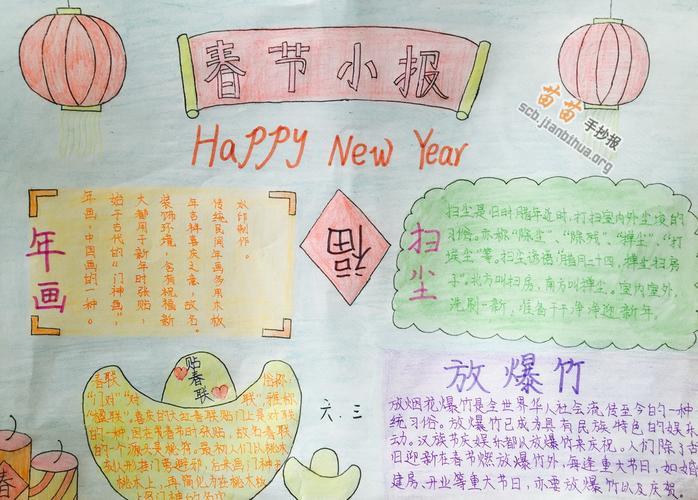 春节小报
苗苗
手抄报
scb.jianbihua.org
Happy New Year
年画
年画，中国画的一种。
始于古代的“门神画”，
大都用于新年时张贴，
装饰环境，含有祝福新
年吉祥喜庆之意，故名。
传统民间年画多用木板
水印制作。
福
扫尘
扫尘是旧时腊年近时，打扫室内外尘埃的
习俗。亦称“除尘”、“除残”、“掸尘”、“打
埃尘”等。扫尘谚语“腊月二十四，掸尘扫房
子”。北方叫扫房，南方叫掸尘。室内室外，
洗刷一新，准备干干净净迎新年。
贴春联
春联 俗称：
“门对”“对联”，雅称
“楹联”，喜庆的大红春联贴门上是对联
的一种，因在春节时张贴，故名春联
的一个源头是桃符。最初人们以桃木
刻人形挂门旁避邪，后来画门神于
桃木上，再简化为在桃木
六.三
放爆竹
放烟花爆竹是全世界华人社会流传至今日的一种
统习俗。放爆竹已成为具有民族特色的娱乐
动。汉族节庆娱乐都以放爆竹来庆祝。人们除了
旧迎新在春节燃放爆竹外，每逢重大节日，如婚
建房、开业等重大节日，亦要放爆竹以及庆贺
春